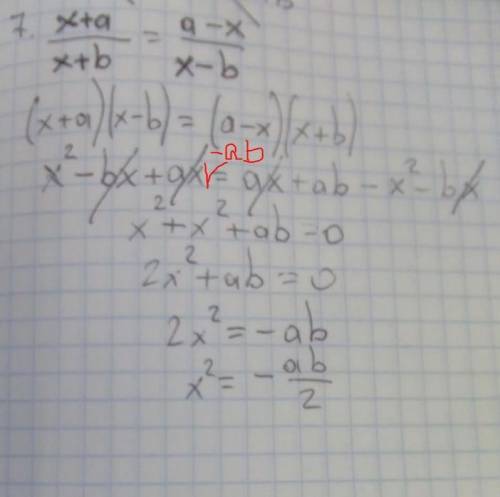 7. (x+a)/(x+b) = (a-x)/(x-b)
(x+a)(x-b) = (a-x)(x+b)
-ab
x² - bx + ax = ax + ab - x² - bx
x² + x² + ab - 0
2x² + ab = 0
2x² = -ab
x² = - ab/2